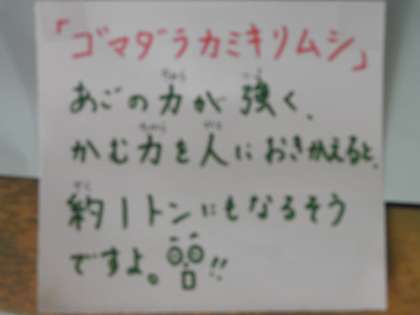 「ゴマダラカミキリムシ」
あごの力が強く、
かむ力を人におきかえると、
約1トンにもなるそう
ですよ。!!